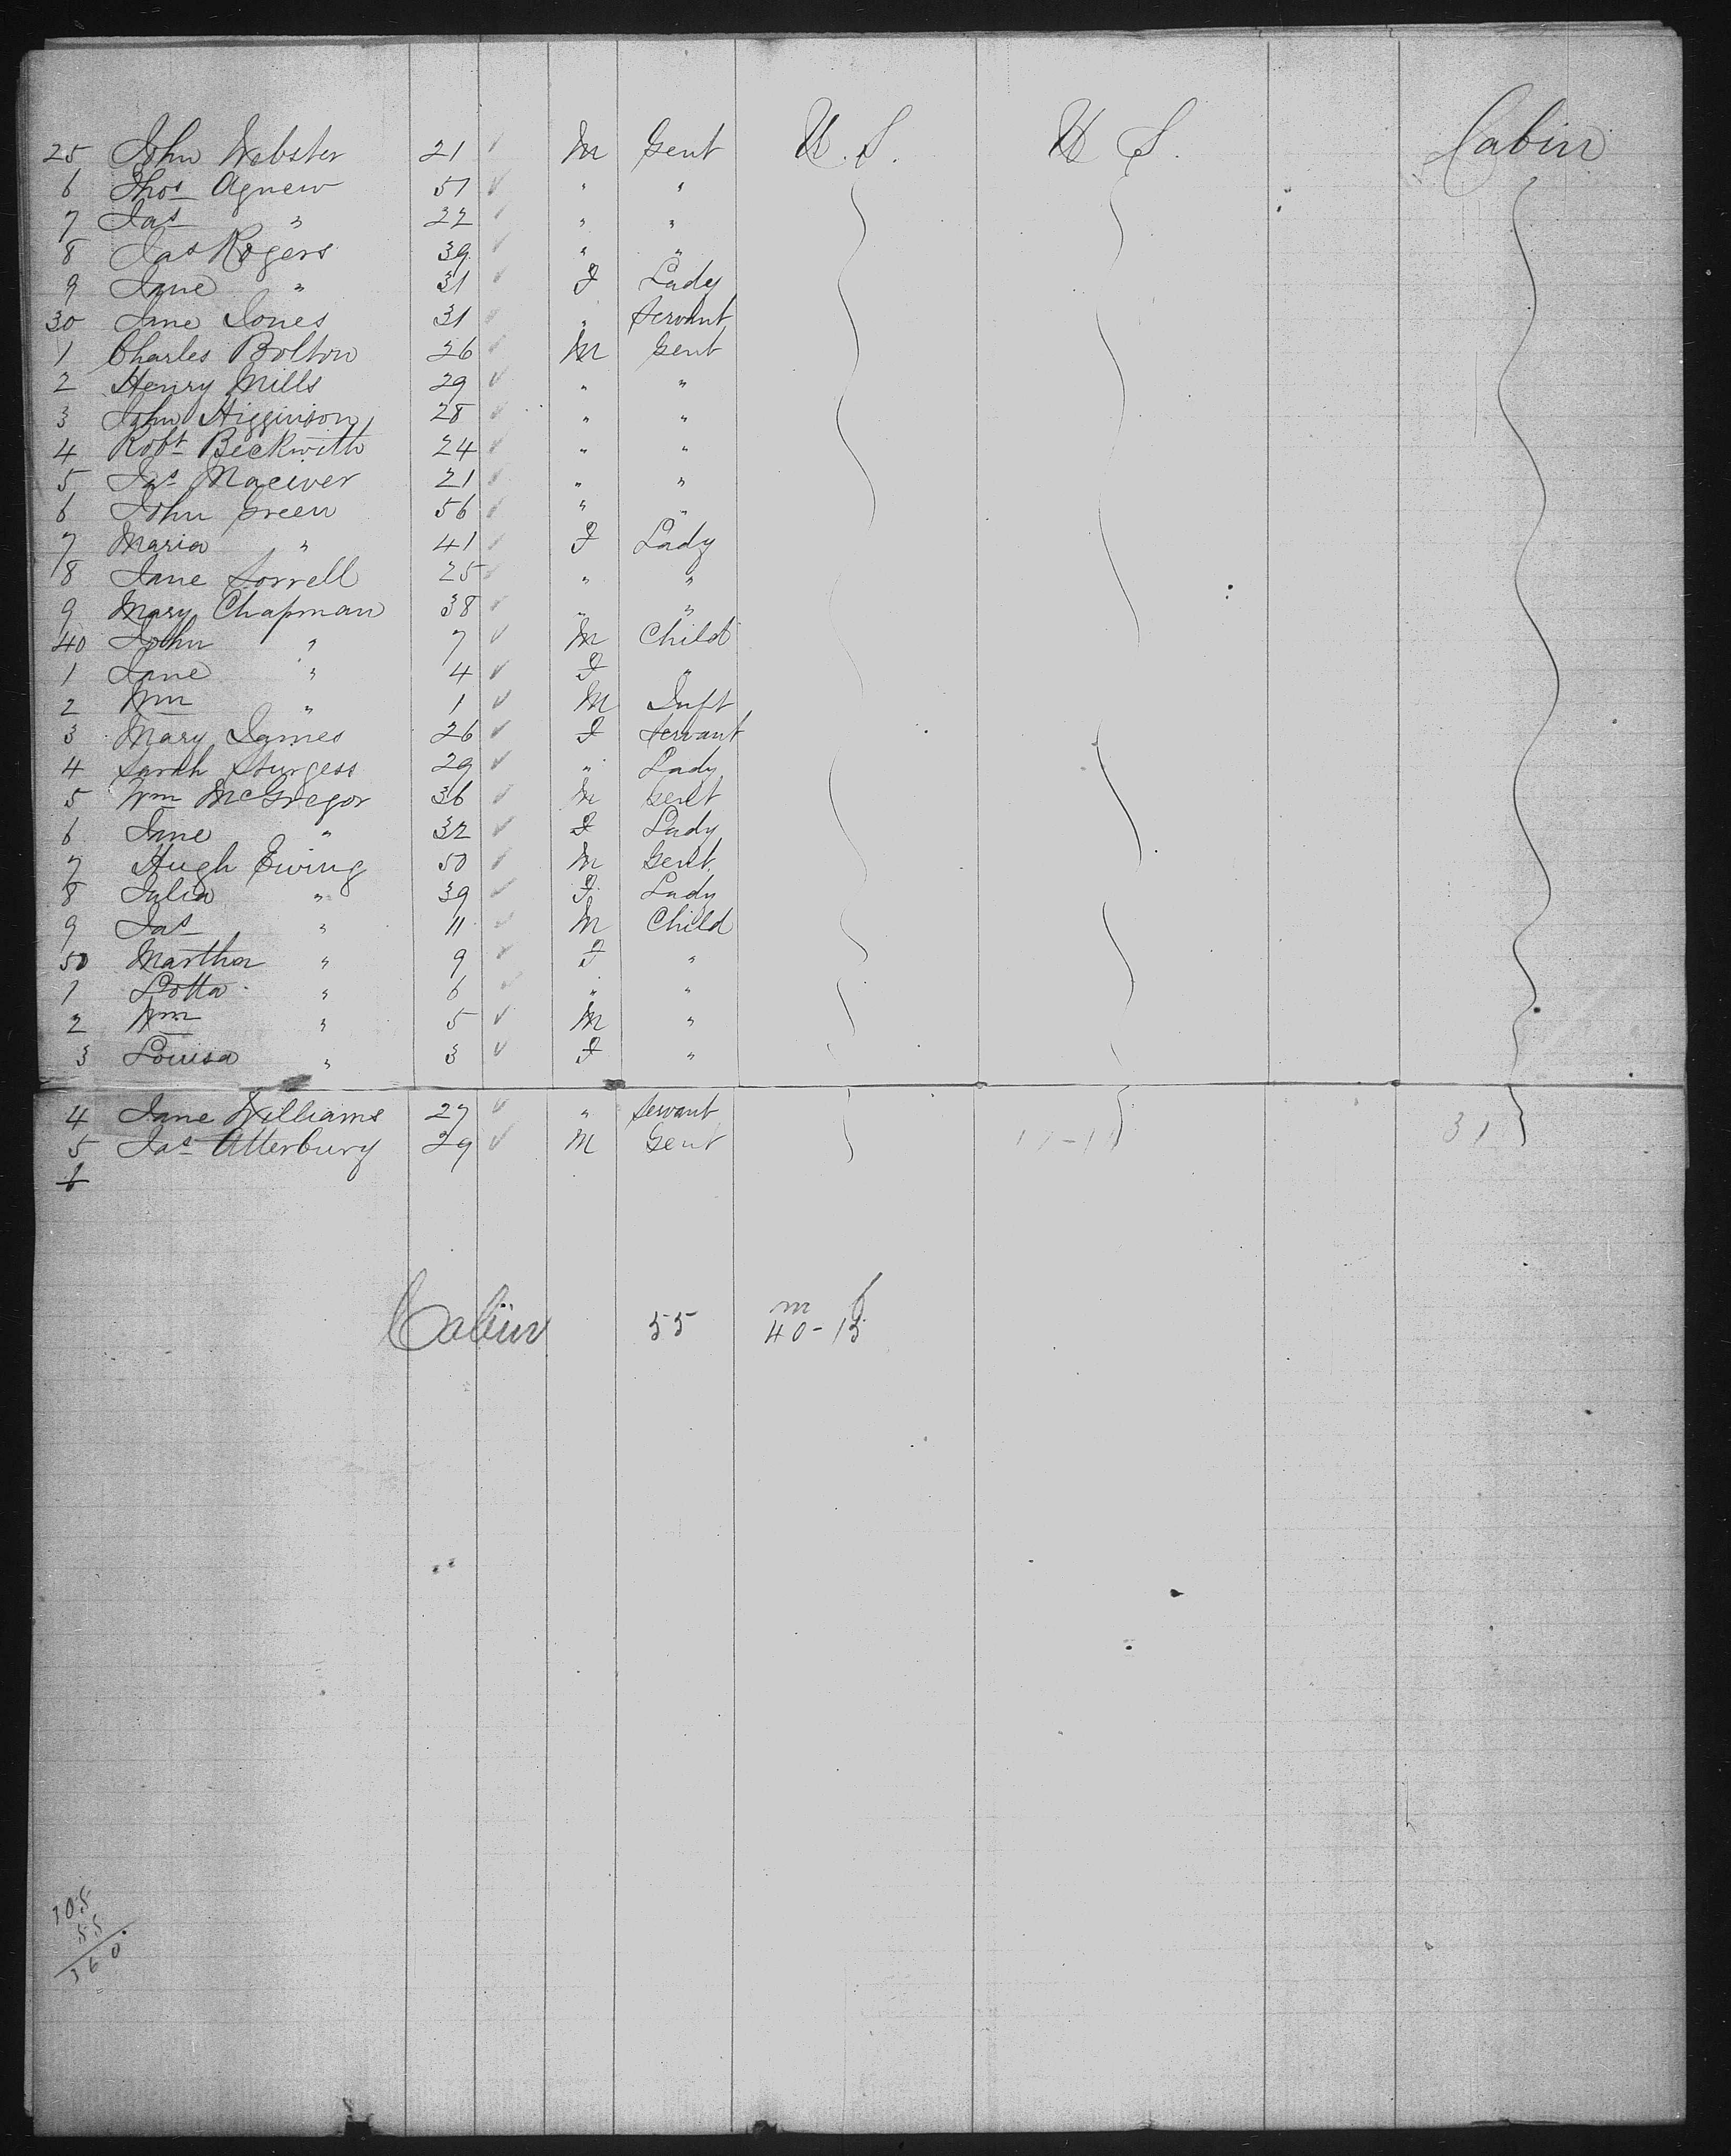 25 John Webster 21 ✓ M Gent U.S. U S. Cabin
6 Thos Agnew 51 ✓ " "
7 Jas " 22 ✓ " "
8 Jas Rogers 39 ✓ " "
9 Jane " 31 ✓ F Lady
30 Jane Jones 31 ✓ " Servant
1 Charles Bolton 26 ✓ M Gent
2 Henry Mills 29 ✓ " "
3 John Higginson 28 ✓ " "
4 Robt Beckwith 24 ✓ " "
5 Jas Maciver 21 ✓ " "
6 John Green 56 ✓ " "
7 Maria " 41 ✓ F Lady
8 Jane Sorrell 25 ✓ " "
9 Mary Chapman 38 ✓ " "
40 John " 7 ✓ M Child
1 Jane " 4 ✓ F "
2 Wm " 1 ✓ M Inft
3 Mary James 26 ✓ F Servant
4 Sarah Sturgess 29 ✓ " Lady
5 Wm McGregor 36 ✓ M Gent
6 Jane " 32 ✓ F Lady
7 Hugh Ewing 50 ✓ M Gent.
8 Julia " 39 ✓ F Lady
9 Jas " 11 ✓ M Child
50 Martha " 9 ✓ F "
1 Lotta " 6 ✓ " "
2 Wm " 5 ✓ M "
3 Louisa " 3 ✓ F "
4 Jane Williams 27 ✓ " Servant
5 Jas Atterbury 29 ✓ M Gent 31
6
m f
Cabin 55 40-15
105
55
160